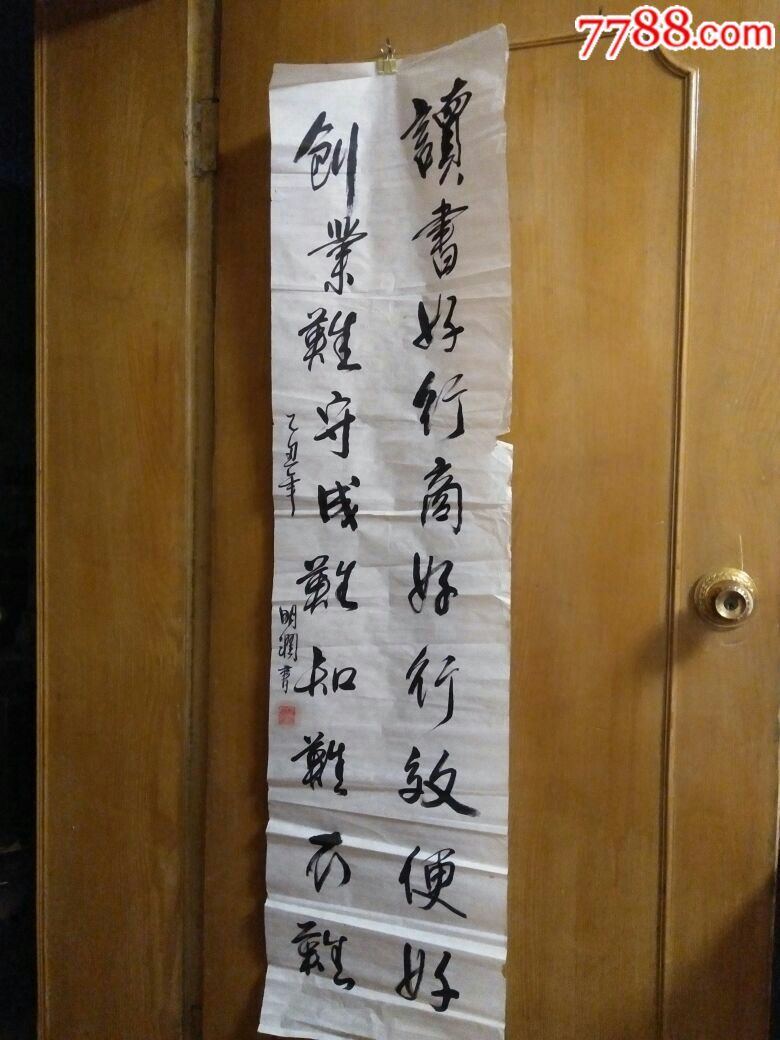 7788.com
讀書好行商好行效便好
創業難守成難知難不難
乙丑年
明潤書